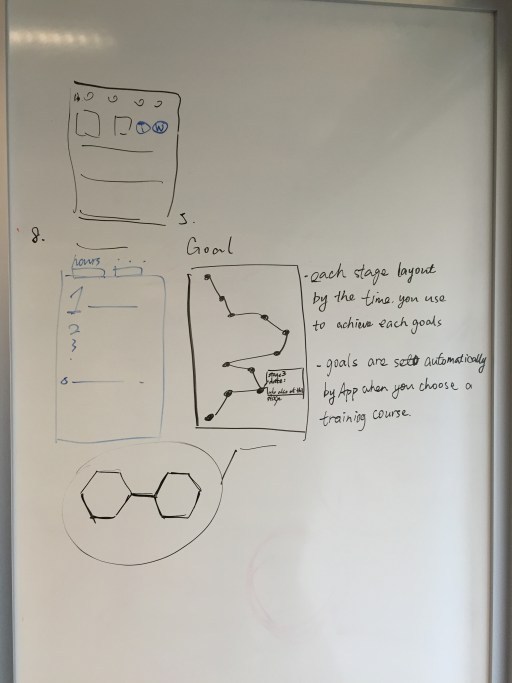 8.
5.
T W
hours
1
2
3
6
Goal
- each stage layout
by the time you use
to achieve each goals
- goals are set automatically
by App when you choose a
training course.